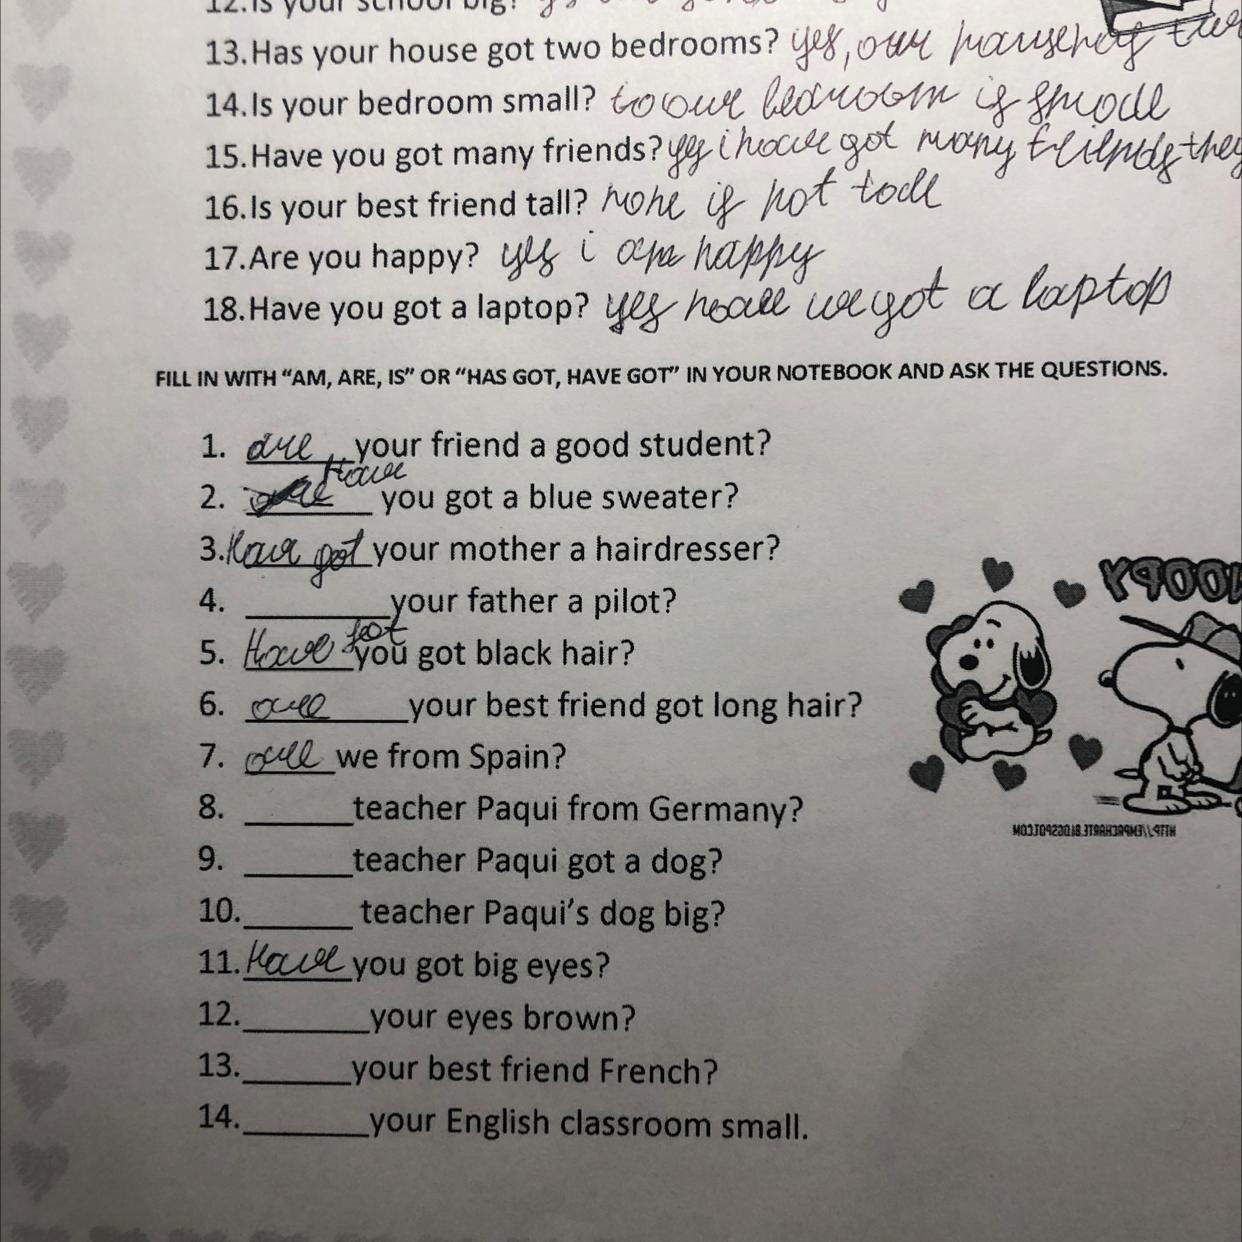 12.Is your school big? yes
13.Has your house got two bedrooms? yes, our
14.Is your bedroom small? bedroom is
15.Have you got many friends? yes i have got many friends they
16.Is your best friend tall? is not
17.Are you happy? yes i am happy
18.Have you got a laptop? yes we got a laptop
FILL IN WITH “AM, ARE, IS” OR “HAS GOT, HAVE GOT” IN YOUR NOTEBOOK AND ASK THE QUESTIONS.
1. are your friend a good student?
2. Have you got a blue sweater?
3. Have got your mother a hairdresser?
4. your father a pilot?
5. Have got you got black hair?
6. your best friend got long hair?
7. we from Spain?
8. teacher Paqui from Germany?
9. teacher Paqui got a dog?
10. teacher Paqui’s dog big?
11. Have you got big eyes?
12. your eyes brown?
13. your best friend French?
14. your English classroom small.